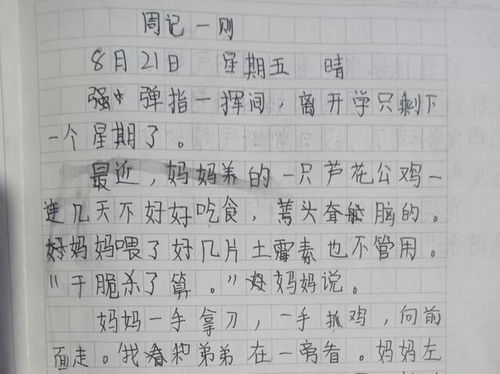 周记一则
8月21日 星期五 晴
弹指一挥间，离开学只剩下
一个星期了。
最近，妈妈养的一只芦花公鸡一
连几天不好好吃食，蔫头耷脑的。
妈妈喂了好几片土霉素也不管用。
"干脆杀了算。"妈妈说。
妈妈一手拿刀，一手抓鸡，向前
面走。我和弟弟在一旁看。妈妈左